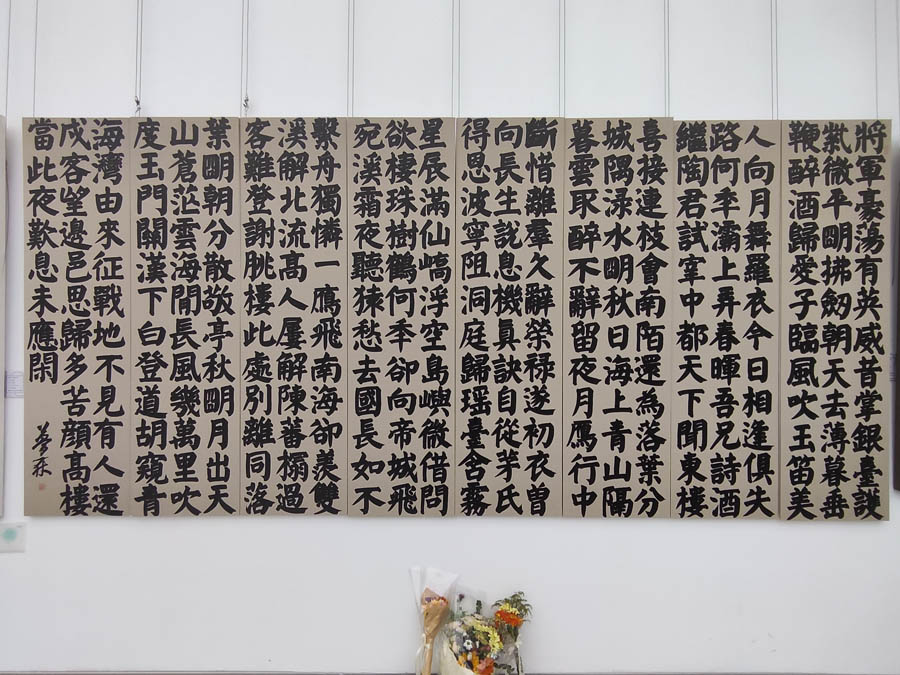 將軍豪蕩有英威昔掌銀臺護
紫微平朙拂劒朝天去薄暮垂
鞭醉酒歸愛子臨風吹玉笛美
人向月舞羅衣今日相逢俱失
路何年灞上弄春暉吾兄詩酒
繼陶君試宰中都天下聞東樓
喜接連枝會南陌還為落葉分
城隅淥水朙秋日海上青山隔
暮雲取醉不辭留夜月鴈行中
斷惜離羣久辭榮祿遂初衣曾
向長生說息機真訣自從茅氏
得恩波寧阻洞庭歸瑤臺含霧
星辰滿仙嶠浮空島嶼微借問
欲棲珠樹鶴何年卻向帝城飛
宛溪霜夜聽猿愁去國長如不
繫舟獨憐一鴈飛南海卻羨雙
溪解北流高人屢解陳蕃榻過
客難登謝朓樓此處別離同落
葉朙朝分散敬亭秋朙月出天
山蒼茫雲海間長風幾萬里吹
度玉門關漢下白登道胡窺青
海灣由來征戰地不見有人還
戍客望邊邑思歸多苦顏高樓
當此夜歎息未應閑